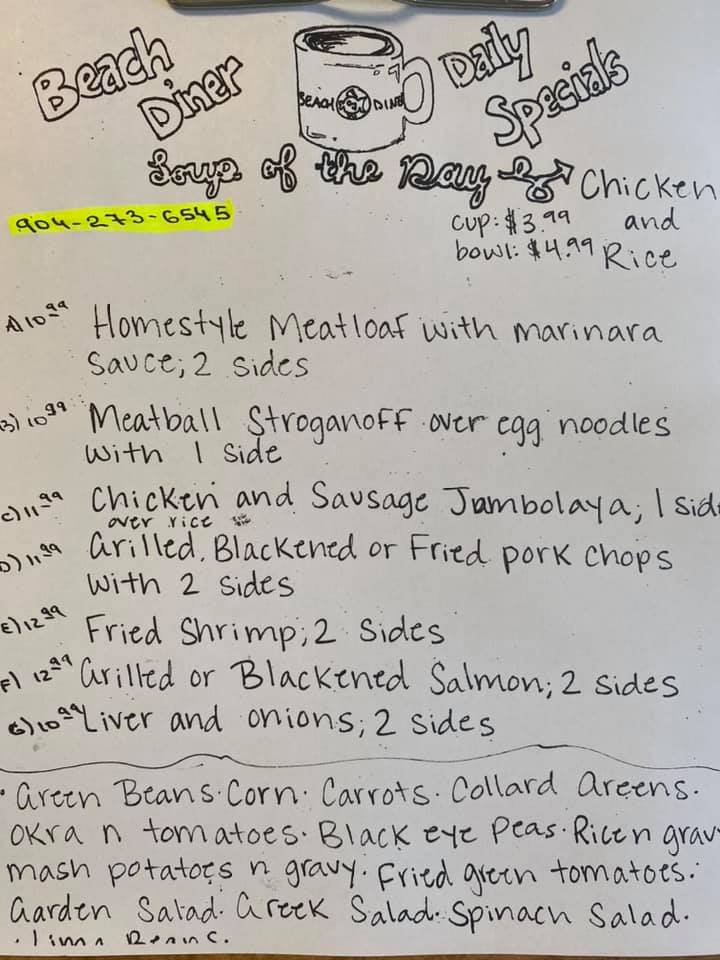 Beach Diner
Daily Specials
BEACH DINER
Soups of the Day
Chicken and Rice
cup: $3.99
bowl: $4.99
904-273-6545
A) 10.99 Homestyle Meatloaf with marinara
Sauce; 2 sides
B) 10.99 Meatball Stroganoff over egg noodles
with 1 side
C) 11.99 Chicken and Sausage Jambolaya; 1 side
over rice
D) 11.99 Grilled, Blackened or Fried pork chops
with 2 sides
E) 12.99 Fried Shrimp; 2 sides
F) 12.99 Grilled or Blackened Salmon; 2 sides
G) 10.99 Liver and onions; 2 sides
· Green Beans · Corn · Carrots · Collard Greens ·
Okra n tomatoes · Black eye Peas · Rice n gravy
mash potatoes n gravy · Fried green tomatoes ·
Garden Salad · Greek Salad · Spinach Salad ·
· Lima Beans ·